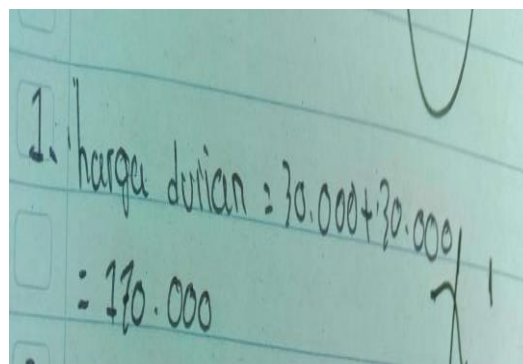 1. harga durian = 30.000 + 30.000
= 170.000